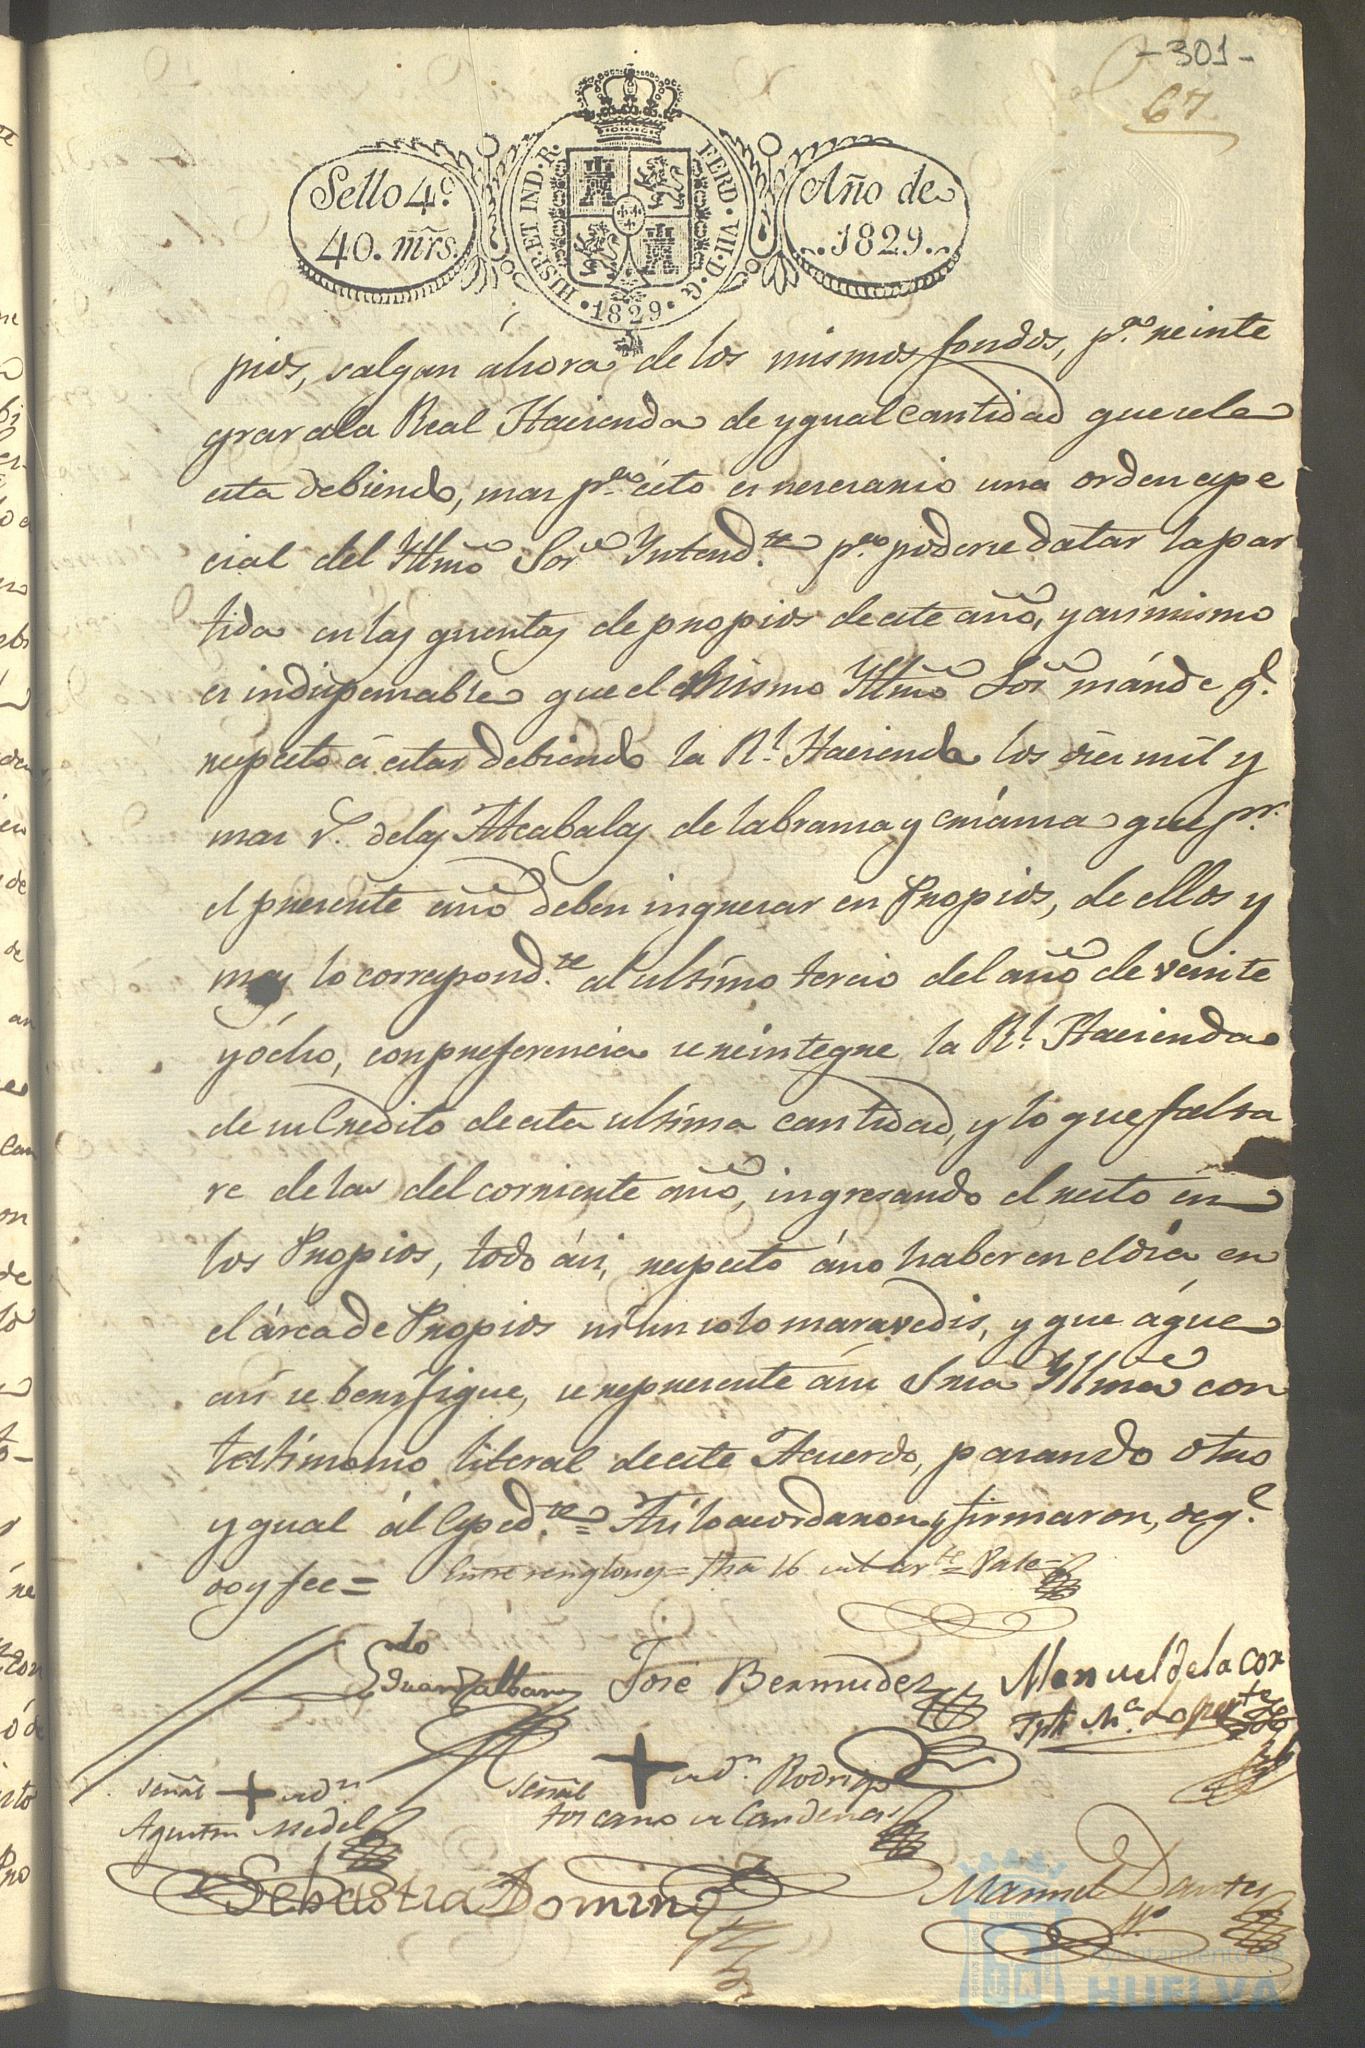 - 301 -
67
Sello 4º
40. mrs.
HISP. ET IND. R.
FERD. VII. D. G.
· 1829 ·
Año de
1829.
pios, salgan ahora de los mismos fondos, pª reinte
grar ala Real Hacienda de ygual cantidad que sele
esta debiendo, mas pª esto es necesario una orden espe
cial del Yltmo Sor Yntendte pª poderse datar la par
tida en las quentas de propios de este año, y asimismo
es indispensable que el mismo Yltmo Sor mánde q.e
respecto á estar debiendo la Rl. Hacienda los dies mil y
mas rs. delas Alcabalas de labransa y criansa que pr.
el presente año deben ingresar en Propios, de ellos y
mas lo correspondte al ultimo tercio del año de veinte
y ócho, con preferencia se reintegre la Rl. Hacienda
de su Credito de esta ultima cantidad, y lo que falta
re de las del corriente año, ingresando el resto en
los Propios, todo ási, respecto áno haber en el dia en
el árca de Propios ni un solo maravedis, y que áque
asi se berifique, se represente ási Sria Yltma con
testimonio literal de este Acuerdo, pasando otro
ygual ál Espedte = Asi lo acordaron y firmaron, de q.e
doy fee = Entre renglones = fha 16 = Vale =
José Bermudez
Manuel de la Cor
te
Jph Mª Lopez
Señal + de Dn
Agustin Medel
Señal + de Dn Rodrigo
toscano de Cardenas
Sebastian Domin
Manuel
Ayuntamiento de
HUELVA